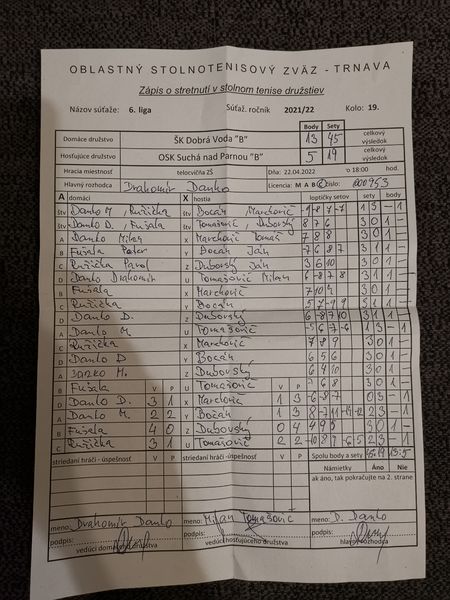 OBLASTNÝ STOLNOTENISOVÝ ZVÄZ - TRNAVA
Zápis o stretnutí v stolnom tenise družstiev
Názov súťaže: 6. liga Súťaž. ročník 2021/22 Kolo: 19.
Body Sety
Domáce družstvo ŠK Dobrá Voda "B" 13 45 celkový výsledok
Hosťujúce družstvo OSK Suchá nad Parnou "B" 5 19 celkový výsledok
Hracia miestnosť telocvičňa ZŠ Dňa: 22.04.2022 o 18:00 hod.
Hlavný rozhodca Drahomír Danko Licencia: M A B C číslo:
A domáci X hostia loptičky setov sety body
štv Danko M., Ružička štv Bocán, Marckovič 1 3 - 1
štv Danko D., Fušala štv Tomašovič, Dubovský 8 7 6 3 0 1 -
A Danko Milan X Marckovič Tomáš 7 8 8 3 0 1 -
B Fušala Peter Y Bocán Ján -7 6 8 7 3 1 1 -
C Ružička Pavol Z Dubovský Ján 3 0 1 -
D Danko Drahomír U Tomašovič Milan 3 1 1 -
B Fušala X Marckovič 3 0 1 -
C Ružička Y Bocán 3 1 1 -
D Danko D. Z Dubovský 3 1 1 -
A Danko M. U Tomašovič -5 6 -7 -6 1 3 - 1
C Ružička X Marckovič 7 8 9 3 0 1 -
D Danko D Y Bocán 6 5 6 3 0 1 -
A Danko M. Z Dubovský 3 0 1 -
B Fušala V P U Tomašovič V P 3 0 1 -
D Danko D. 3 1 X Marckovič 1 3 -6 -8 -7 0 3 - 1
A Danko M. 2 2 Y Bocán 1 3 2 3 - 1
B Fušala 4 0 Z Dubovský 0 4 4 9 5 3 0 1 -
C Ružička 3 1 U Tomašovič 2 2 2 3 - 1
striedaní hráči - úspešnosť V P striedaní hráči - úspešnosť V P Spolu body a sety 45:19 13:5
Námietky Áno Nie
ak áno, tak pokračujte na 2. strane
meno: Drahomír Danko meno: Milan Tomašovič meno: D. Danko
podpis: podpis: podpis:
vedúci domáceho družstva vedúci hosťujúceho družstva hlavný rozhodca